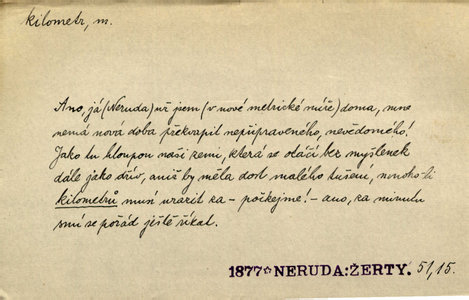 kilometr, m.
Ano, já (Neruda) už jsem (v nové metrické míře) doma, mne
nemá nová doba překvapit nepřipraveného, nevědomého!
Jako tu hloupou naši zemi, která se otáčí bez myšlenek
dále jako dřív, aniž by měla dost malého tušení, mnoho-li
kilometrů musí urazit za - počkejme! - ano, za minutu
smí se pořád ještě říkat.
1877☆NERUDA:ŽERTY. 51,15.